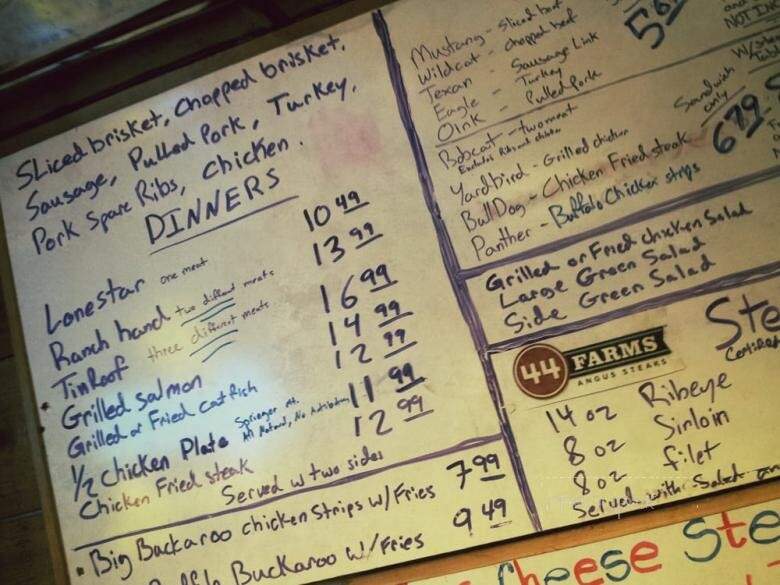 Sliced brisket, Chopped brisket,
Sausage, Pulled Pork, Turkey,
Pork Spare Ribs, Chicken.
DINNERS
Lonestar one meat 10 49
Ranch hand two different meats 13 99
Tin Roof three different meats 16 99
Grilled salmon 14 99
Grilled or Fried Catfish 12 99
1/2 Chicken Plate Springer Mt. All Natural, No Antibiotics 11 99
Chicken Fried steak 12 99
Served w two sides
Big Buckaroo chicken Strips w/Fries 7 99
Buckaroo w/Fries 9 49
Mustang - Sliced beef
Wildcat - chopped beef
Texan - Sausage Link
Eagle - Turkey
Oink - Pulled Pork
NOT IN
Bobcat - two meat
Excludes Ribs and chicken
Yardbird - Grilled chicken
BullDog - Chicken Fried steak
Panther - Buffalo Chicken strips
Sandwich only
6 79
Grilled or Fried chicken Salad
Large Green Salad
Side Green Salad
44 FARMS
ANGUS STEAKS
14 oz Ribeye
8 oz Sirloin
8 oz filet
Served with Salad
Cheese Ste